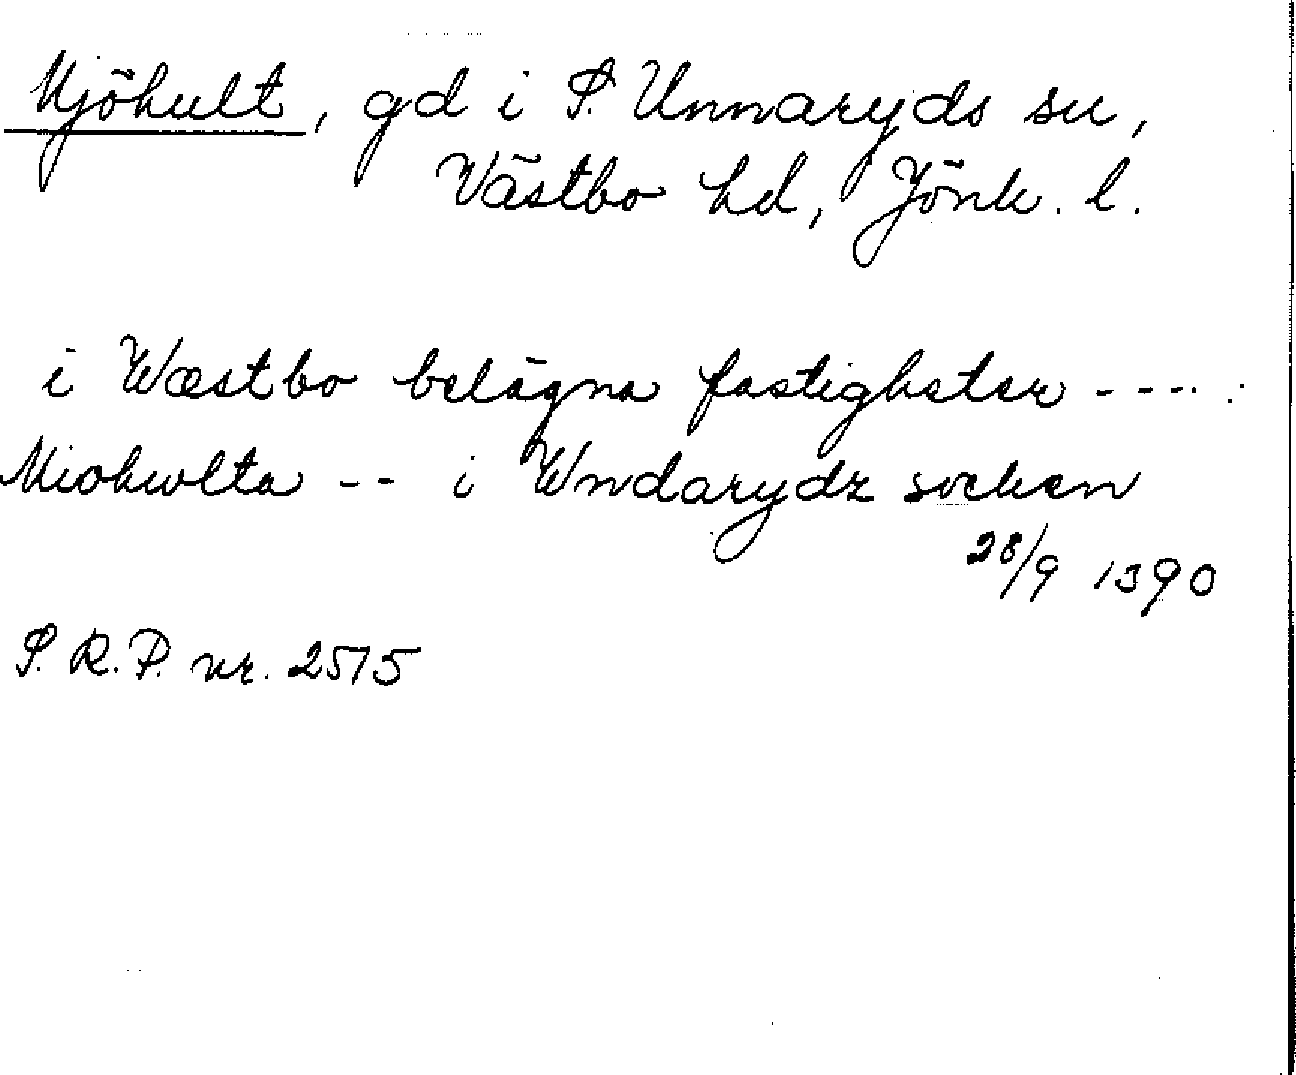 Mjöhult, gd i S. Unnaryds sn,
Västbo hd, Jönk. l.
i Wæstbo belägna fastigheter ----.
Miohwlta -- i Wndarydz socken
28/9 1390
S.R.P. nr. 2575